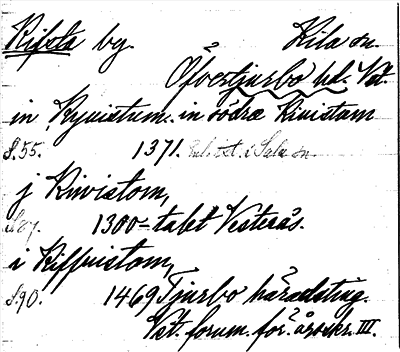 Kifsta by. Kila sn.
Öfvertjurbo hd. Vst.
in Kyuistum. in södra Kiuistam
S. 55. 1371. i Sala sn.
j Kiwistom,
S. 87. 1300-talet Vesterås.
i Kiffuistom,
S. 90. 1469 Tjurbo häradsting.
Vst. fornm. för. årsskr. III.